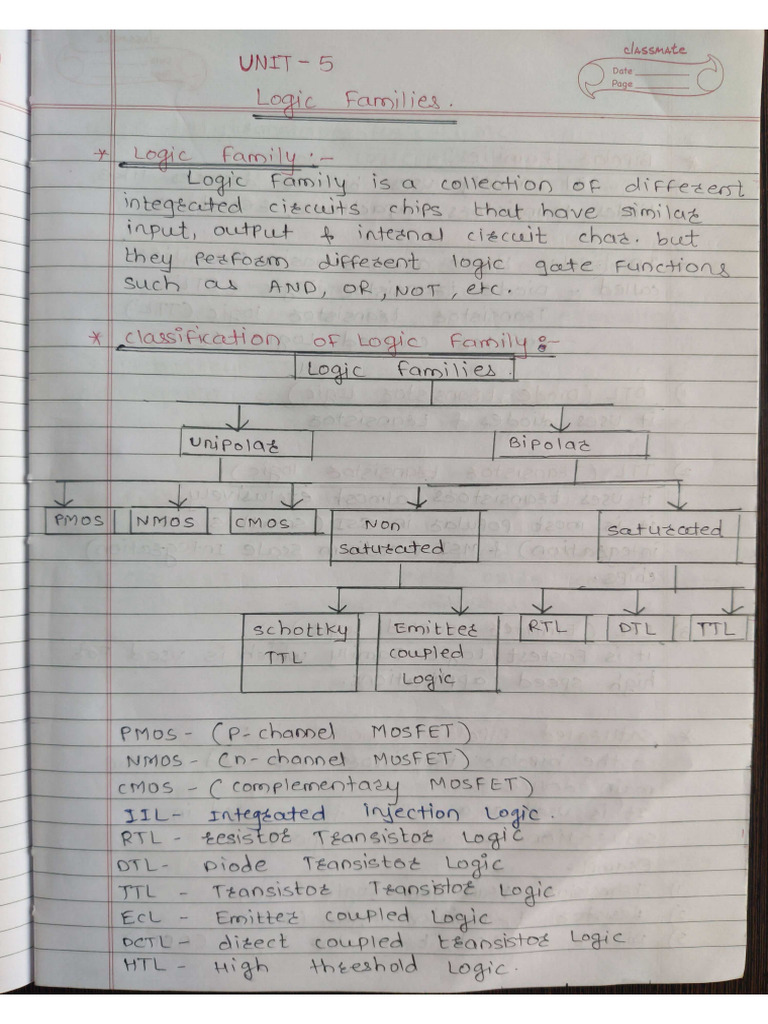 UNIT - 5
classmate
Date
Page
Logic Families.
* Logic Family :-
Logic Family is a collection of different
integrated circuits chips that have similar
input, output & internal circuit char. but
they perform different logic gate functions
such as AND, OR, NOT, etc.
* Classification of Logic Family :-
Logic Families.
Unipolar Bipolar
PMOS NMOS CMOS Non saturated
saturated
Schottky TTL
Emitter coupled Logic
RTL DTL TTL
PMOS - (P-channel MOSFET)
NMOS - (n-channel MOSFET)
CMOS - (complementary MOSFET)
IIL - Integrated injection Logic.
RTL - resistor Transistor Logic
DTL - Diode Transistor Logic
TTL - Transistor Transistor Logic
ECL - Emitter coupled Logic
DCTL - direct coupled transistor Logic
HTL - High threshold Logic.